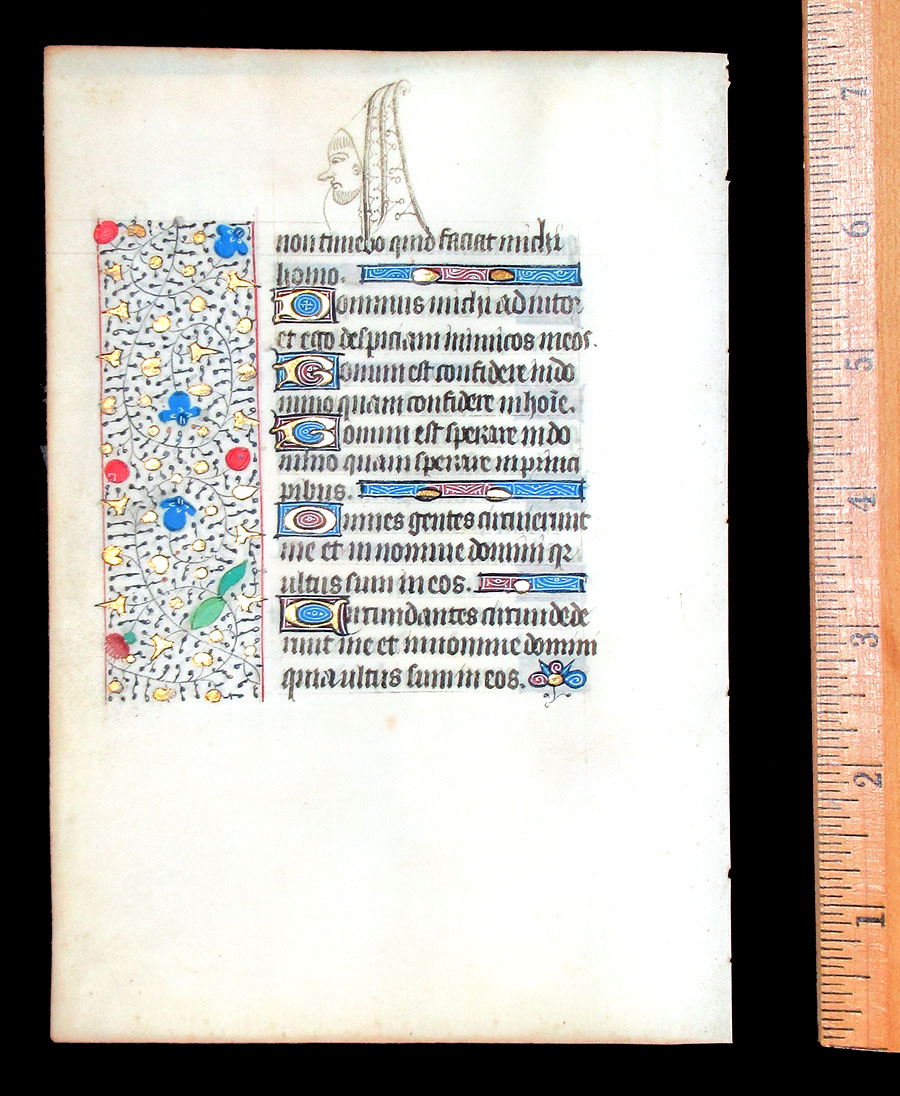 non timebo quid faciat michi
homo.
Dominus michi adiutor
et ego despiciam inimicos meos.
Bonum est confidere in do
mino quam confidere in hoīe.
Bonum est sperare in do
mino quam sperare in princi
pibus.
Omnes gentes circuierunt
me et in nomine domini qꝛ
ultus sum in eos.
Circumdantes circumdede
runt me et in nomine domini
quia ultus sum in eos.
7
6
5
4
3
2
1